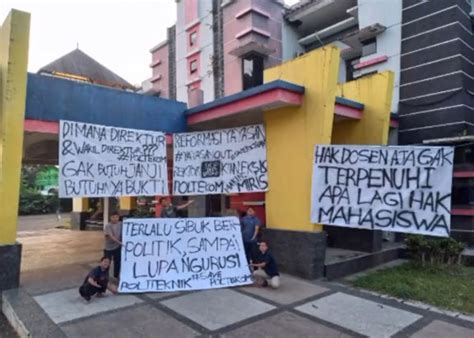 DIMANA DIREKTUR
& WAKIL DIREKTUR???
#POLTEKOM
GAK BUTUH JANJI
BUTUHNYA BUKTI
REFORMASI YAYASAN
#YAYASAN OUT
KINERJA
POLTEKOM
MIRIS
HAK DOSEN AJA GAK
TERPENUHI
APA LAGI HAK
MAHASISWA
TERLALU SIBUK BER
POLITIK, SAMPAI
LUPA NGURUSI
POLITEKNIK #SAVE
POLTEKOM